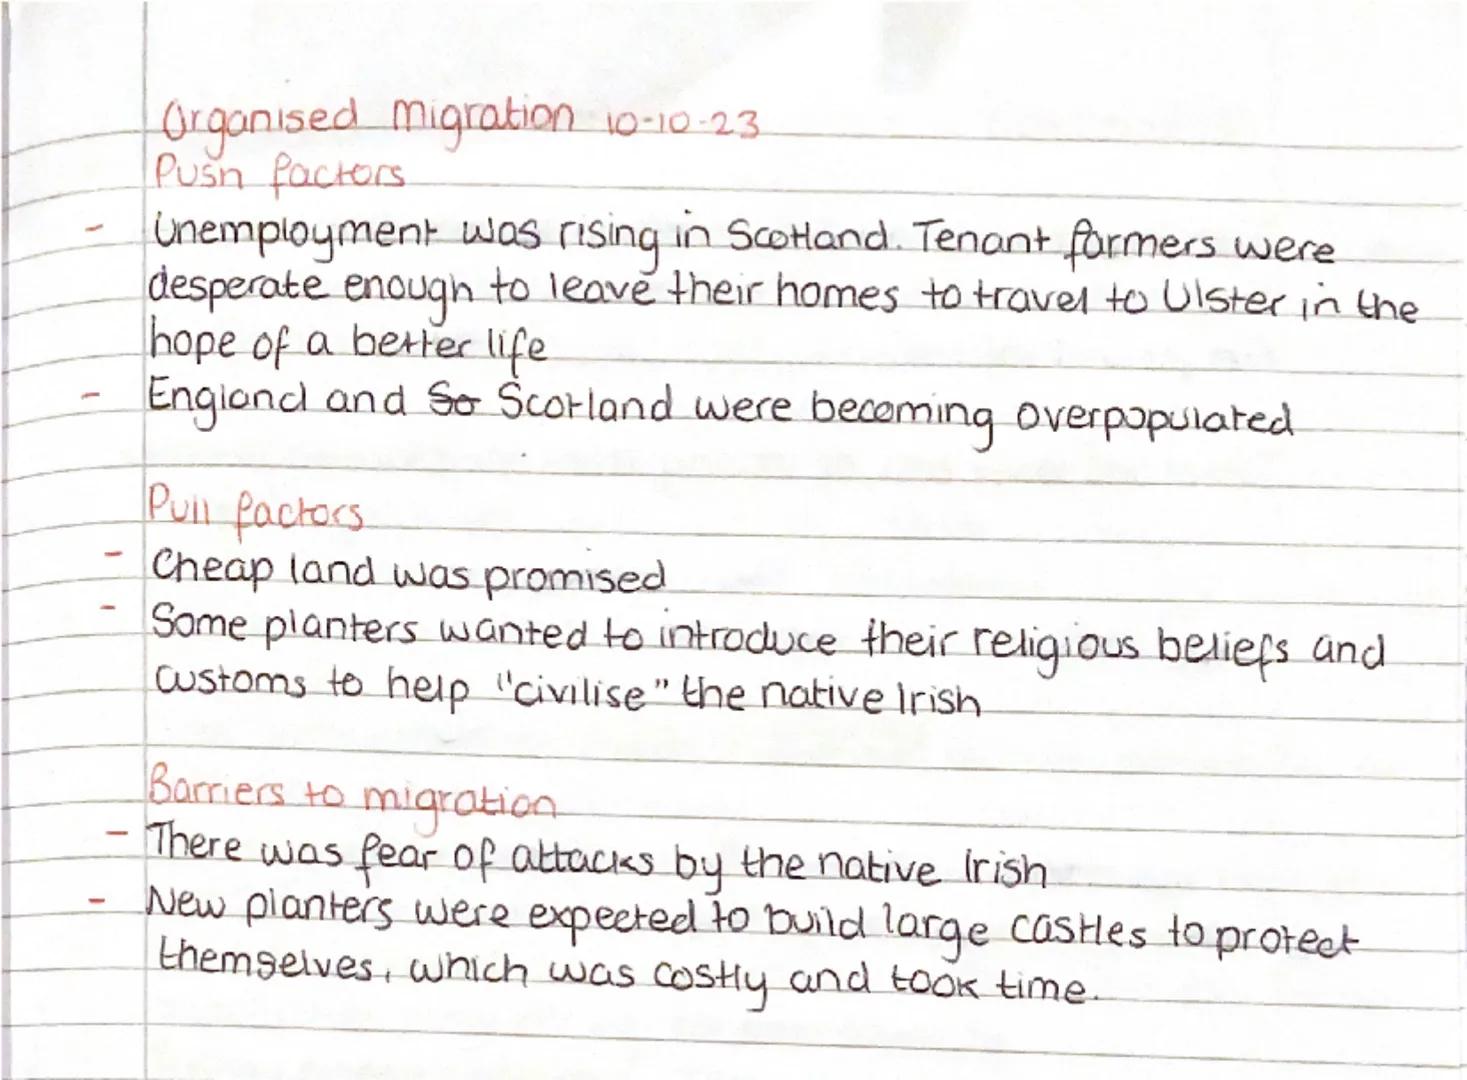 Organised migration 10-10-23
Push factors
- Unemployment was rising in Scotland. Tenant farmers were
desperate enough to leave their homes to travel to Ulster in the
hope of a better life
- England and So Scotland were becoming overpopulated
Pull factors
- Cheap land was promised
- Some planters wanted to introduce their religious beliefs and
customs to help "civilise" the native Irish
Barriers to migration
- There was fear of attacks by the native Irish
- New planters were expected to build large castles to protect
themselves, which was costly and took time.